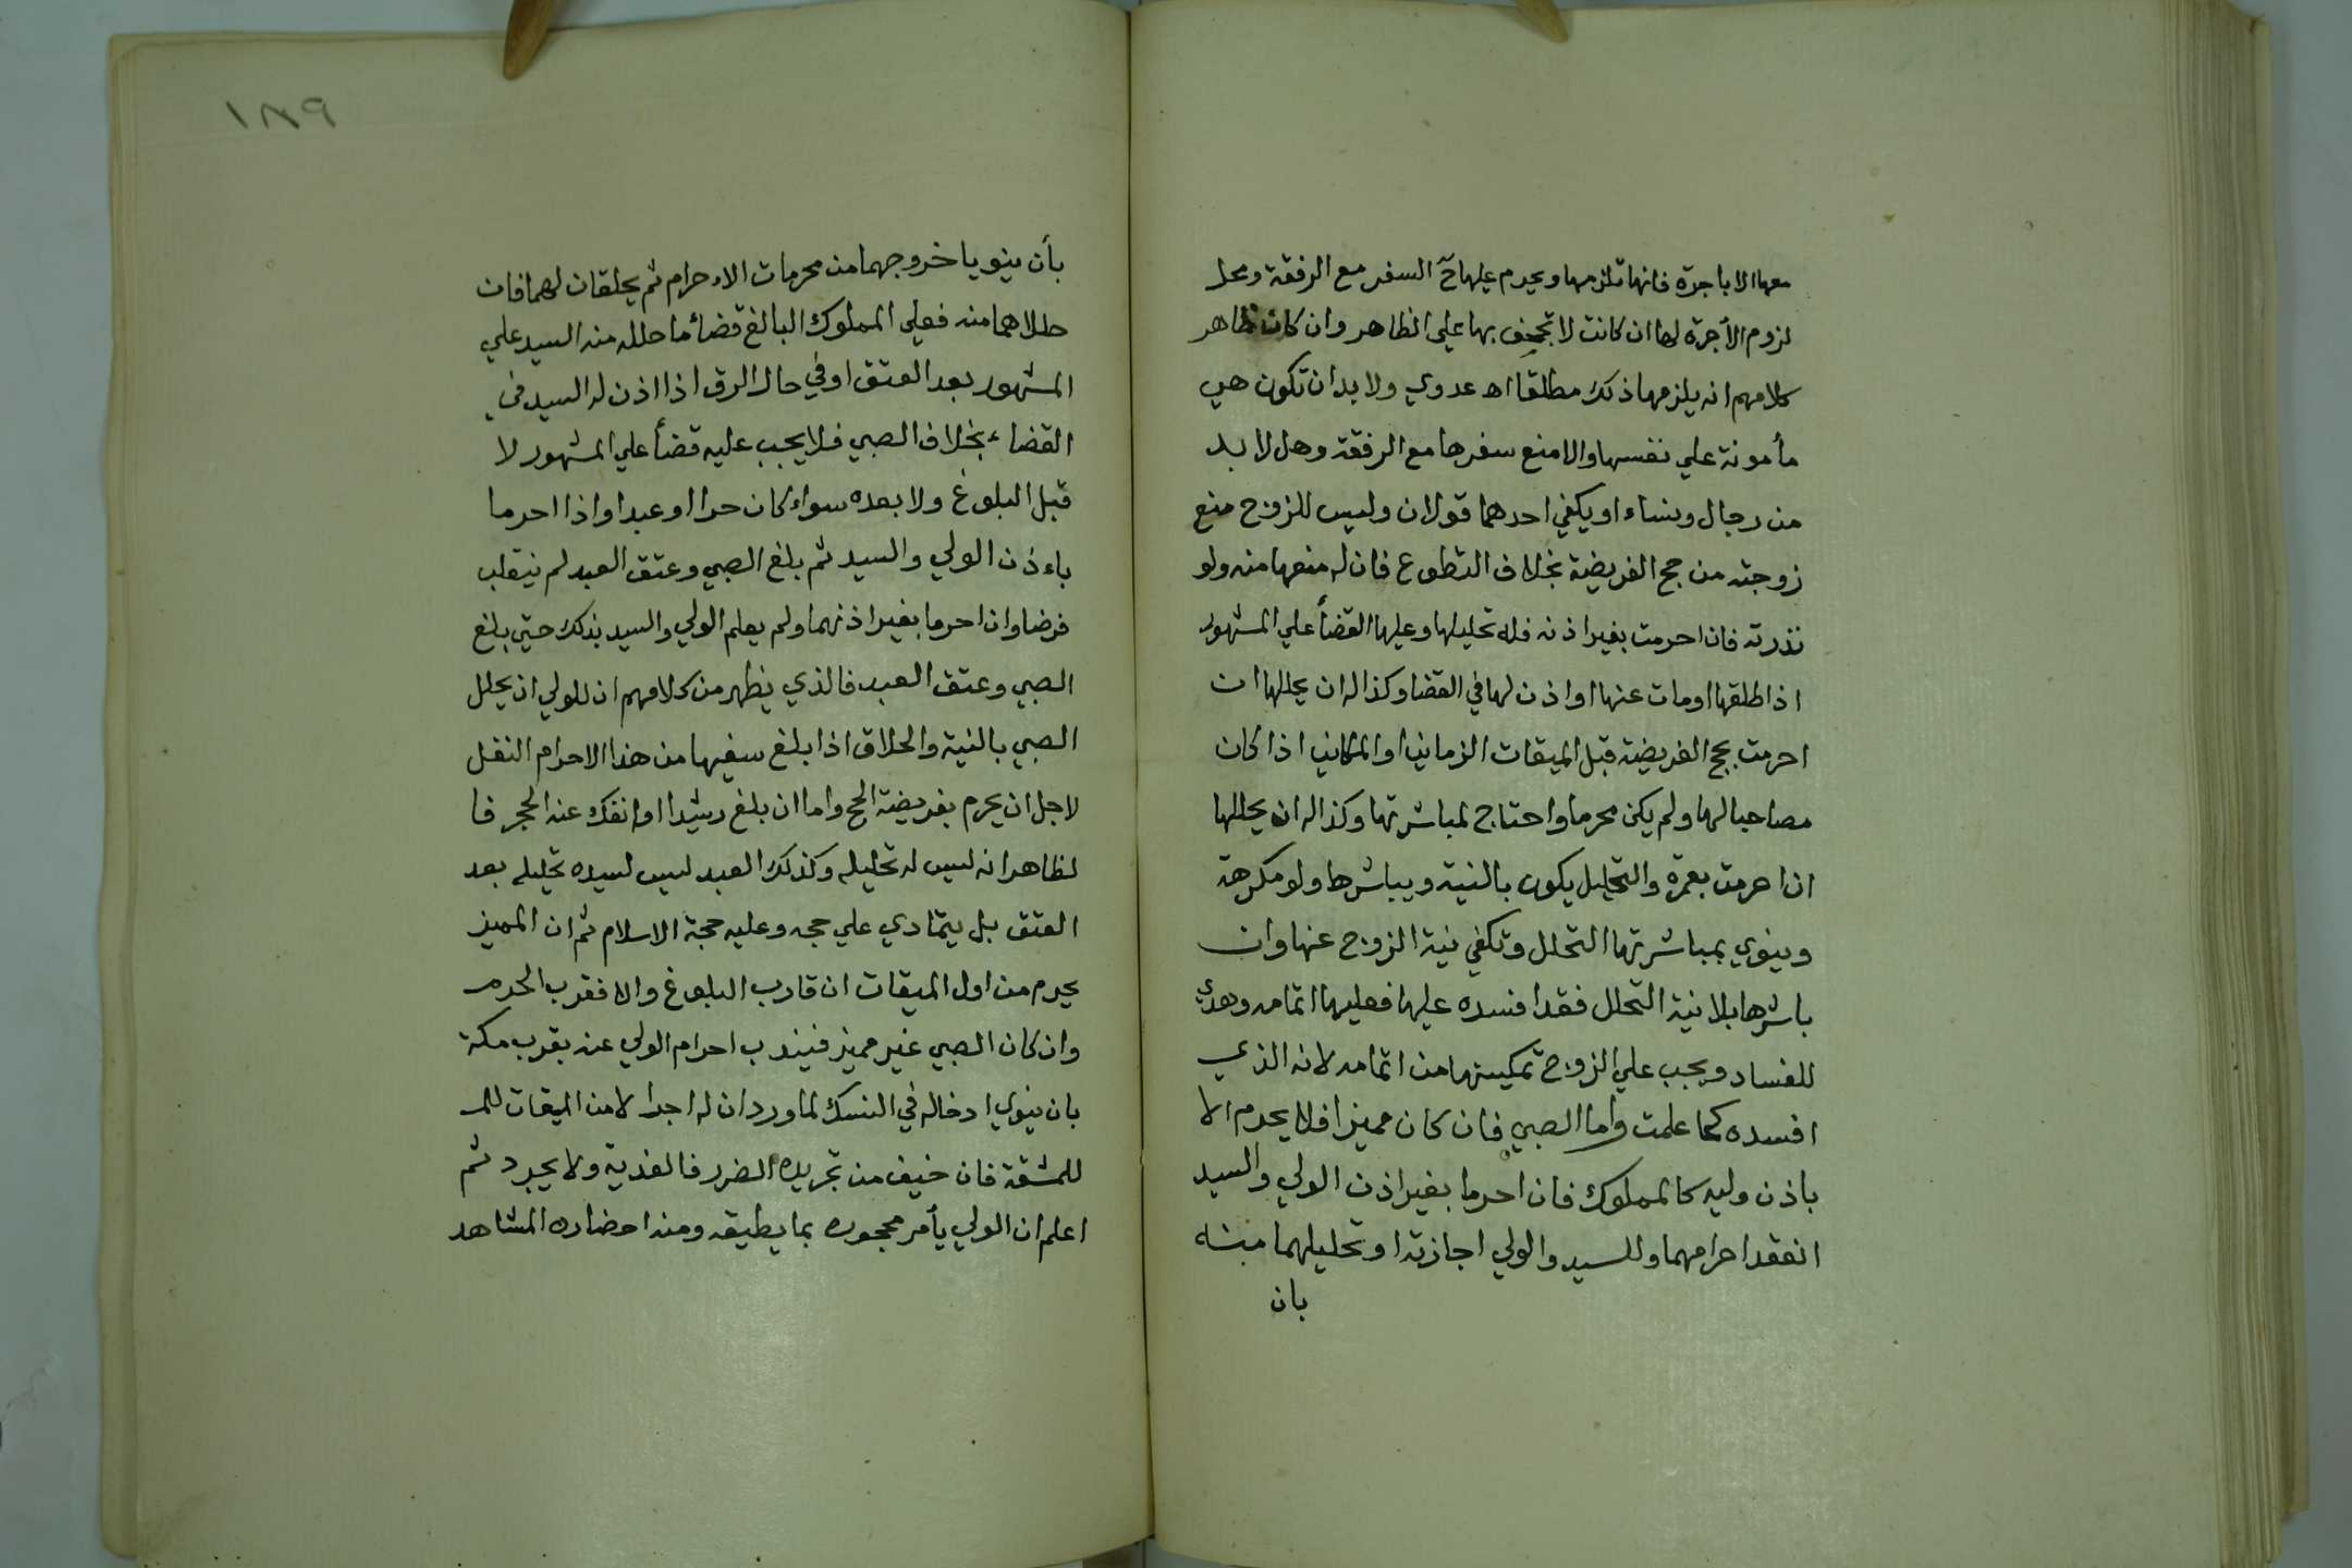 معها الا باجرة فانها تلزمها ويحرم عليها ح السفر مع الرفقة ومحل
لزوم الأجرة لها ان كانت لا تجحف بها علي الظاهر وان كان ظاهر
كلامهم انه يلزمها ذلك مطلقا اه عدوي ولا بد ان تكون هي
مأمونة علي نفسها والا منع سفرها مع الرفقة وهل لا بد
من رجال ونساء او يكفي احدهما قولان وليس للزوج منع
زوجته من حج الفريضة بخلاف التطوع فان له منعها منه ولو
نذرته فان احرمت بغير اذنه فله تحليلها وعليها القضأ علي المشهور
اذا طلقها او مات عنها او اذن لها في القضا وكذا له ان يحللها ان
احرمت بحج الفريضة قبل الميقات الزماني او المكاني اذا كان
مصاحبا لها ولم يكن محرما واحتاج لمباشرتها وكذا له ان يحللها
ان احرمت بعمرة والتحليل يكون بالنية ويباشرها ولو مكرهة
وينوي بمباشرتها التحلل وتكفي نية الزوج عنها وان
باشرها بلا نية التحلل فقد افسده عليها فعليها اتمامه وهدي
للفساد ويجب علي الزوج تمكينها من اتمامه لانه الذي
افسده كما علمت واما الصبي فان كان مميزا فلا يحرم الا
باذن وليه كالمملوك فان احرما بغير اذن الولي والسيد
انعقد احرامهما وللسيد والولي اجازته او تحليلهما منه
بان
١٨٩
بأن ينويا خروجهما من محرمات الاءحرام ثم يحلقان لهما فان
حللاهما منه فعلي المملوك البالغ قضأ ما حلله منه السيد علي
المشهور بعد العتق او في حال الرق اذا اذن له السيد في
القضاء بخلاف الصبي فلا يجب عليه قضأ علي المشهور لا
قبل البلوغ ولا بعده سواء كان حرا او عبدا واذا احرما
باءذن الولي والسيد ثم بلغ الصبي وعتق العبد لم ينقلب
فرضا وان احرما بغير اذنهما ولم يعلم الولي والسيد بذلك حتي بلغ
الصبي وعتق العبد فالذي يظهر من كلامهم ان للولي ان يحلل
الصبي بالنية والحلاق اذا بلغ سفيها من هذا الاحرام النفل
لاجل ان يحرم بفريضة الحج واما ان بلغ رشيدا او انفك عنه الحجر فا
لظاهر انه ليس له تحليله وكذلك العبد ليس لسيده تحليله بعد
العتق بل يتمادي علي حجه وعليه حجة الاسلام ثم ان المميز
يحرم من اول الميقات ان قارب البلوغ والا فقرب الحرم
وان كان الصبي غير مميز فيندب احرام الولي عنه بقرب مكة
بان ينوي ادخاله في النسك لما ورد ان له اجرا لا من الميقات للم
للمشقة فان خيف من تجريده الضرر فالفدية ولا يجرد ثم
اعلم ان الولي يأمر محجوره بما يطيقه ومنه احضاره المشاهد